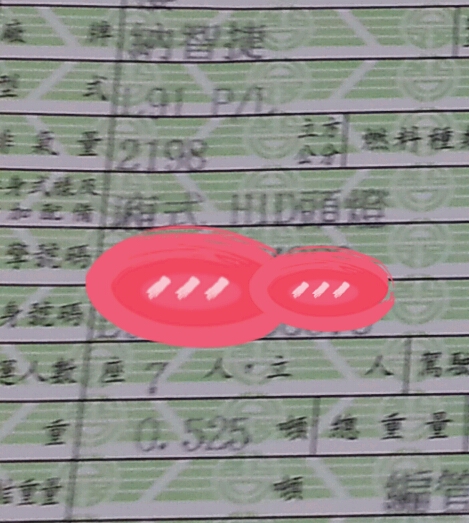 廠 牌 納智捷
型 式 L91 P/L
排氣量 2198 立方公分 燃料種
身式樣及加配備 廂式 HID頭燈
擎號碼
身號碼
運人數 座 7 人.立 人 駕駛
重 0.525 噸 總重量
重量 噸 編管